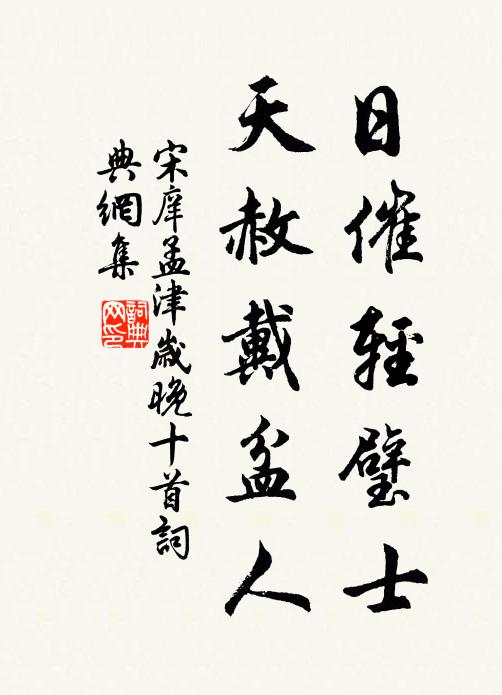 日催輕璧士
天赦戴盆人
宋庠孟津歲晚十首詞
典網集
詞典網印